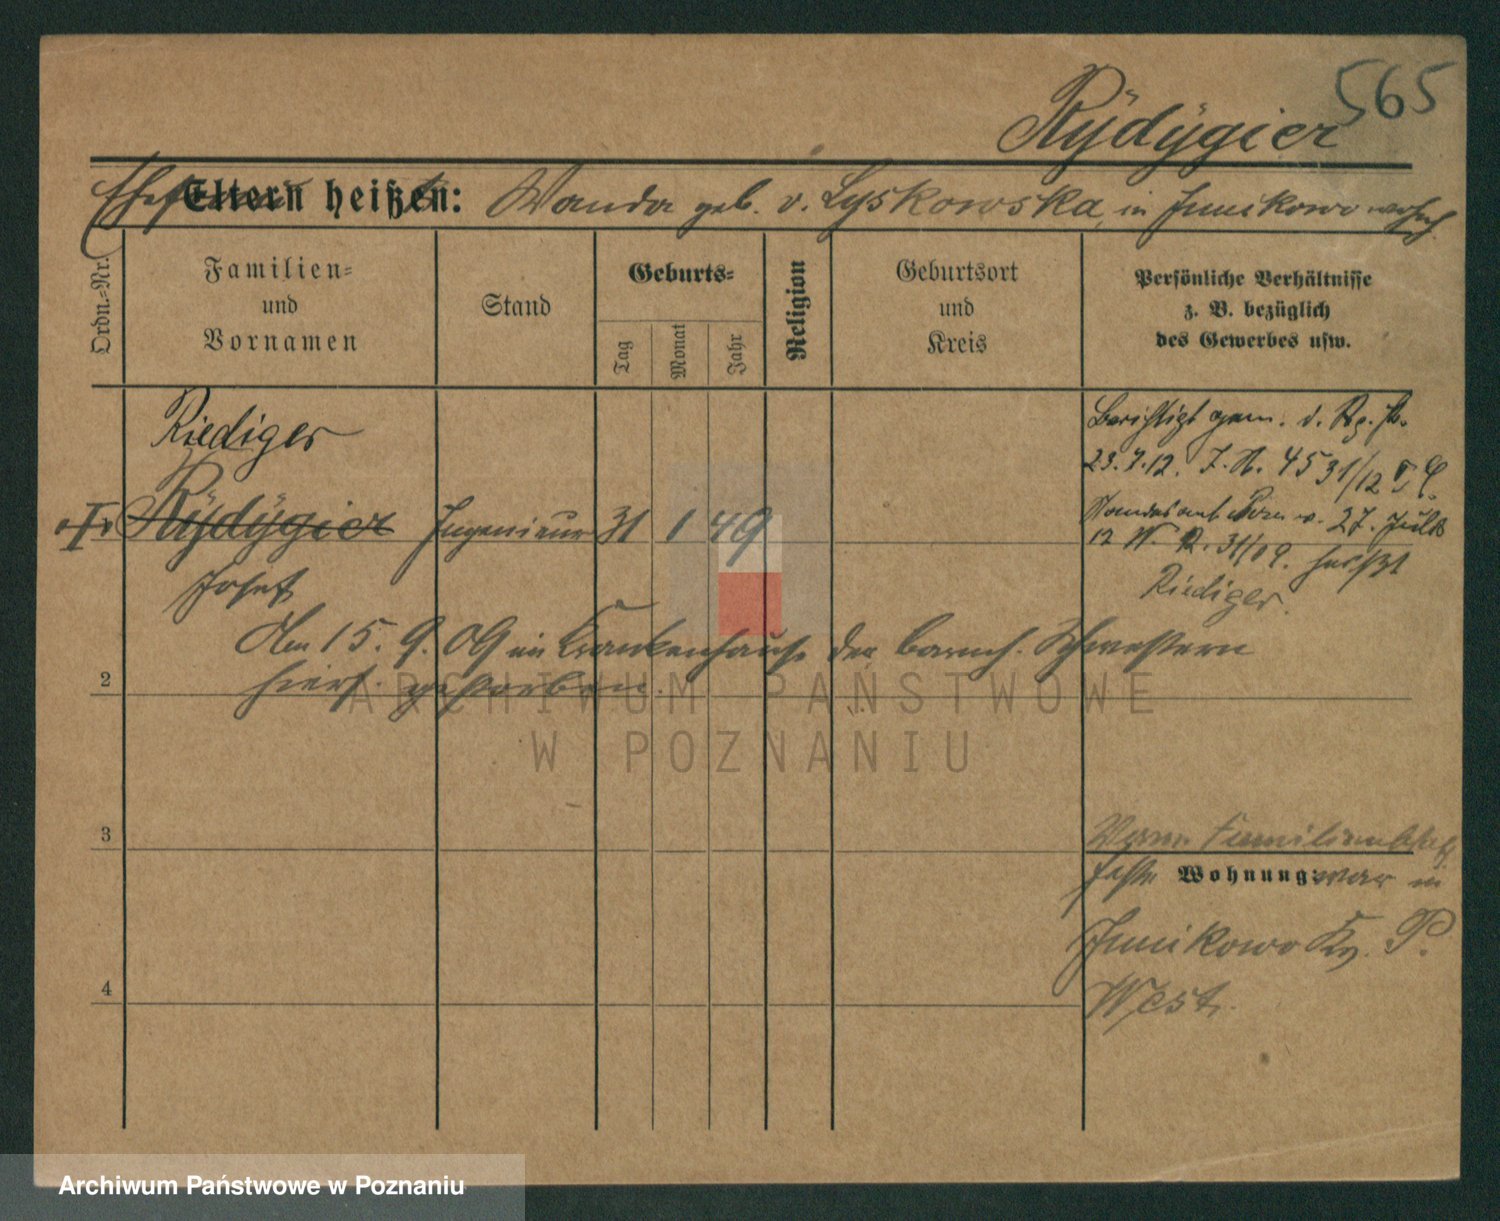 565
Rÿdÿgier
Ehefrau
Eltern heißen: Wanda geb. v. Lyskowska, in Junikowo wohnh.
Ordn.-Nr.
Familien-
und
Vornamen
Stand
Geburts-
Tag
Monat
Jahr
Religion
Geburtsort
und
Kreis
Persönliche Verhältnisse
z. B. bezüglich
des Gewerbes usw.
Riediger
Rÿdÿgier Ingenieur 31 1 49
Josef
Berichtigt gem. d.
23.7.12. J. N. 4531/12
Standesamt Posen v. 27. Juli
12 31/09. heißt
Riediger.
Am 15. 9. 09 im Krankenhause der barmh. Schwestern
hiers. gestorben.
2
3
4
Familienblatt
feste Wohnung: war in
Junikowo Kr. P.
West.
ARCHIWUM PAŃSTWOWE
W POZNANIU
Archiwum Państwowe w Poznaniu